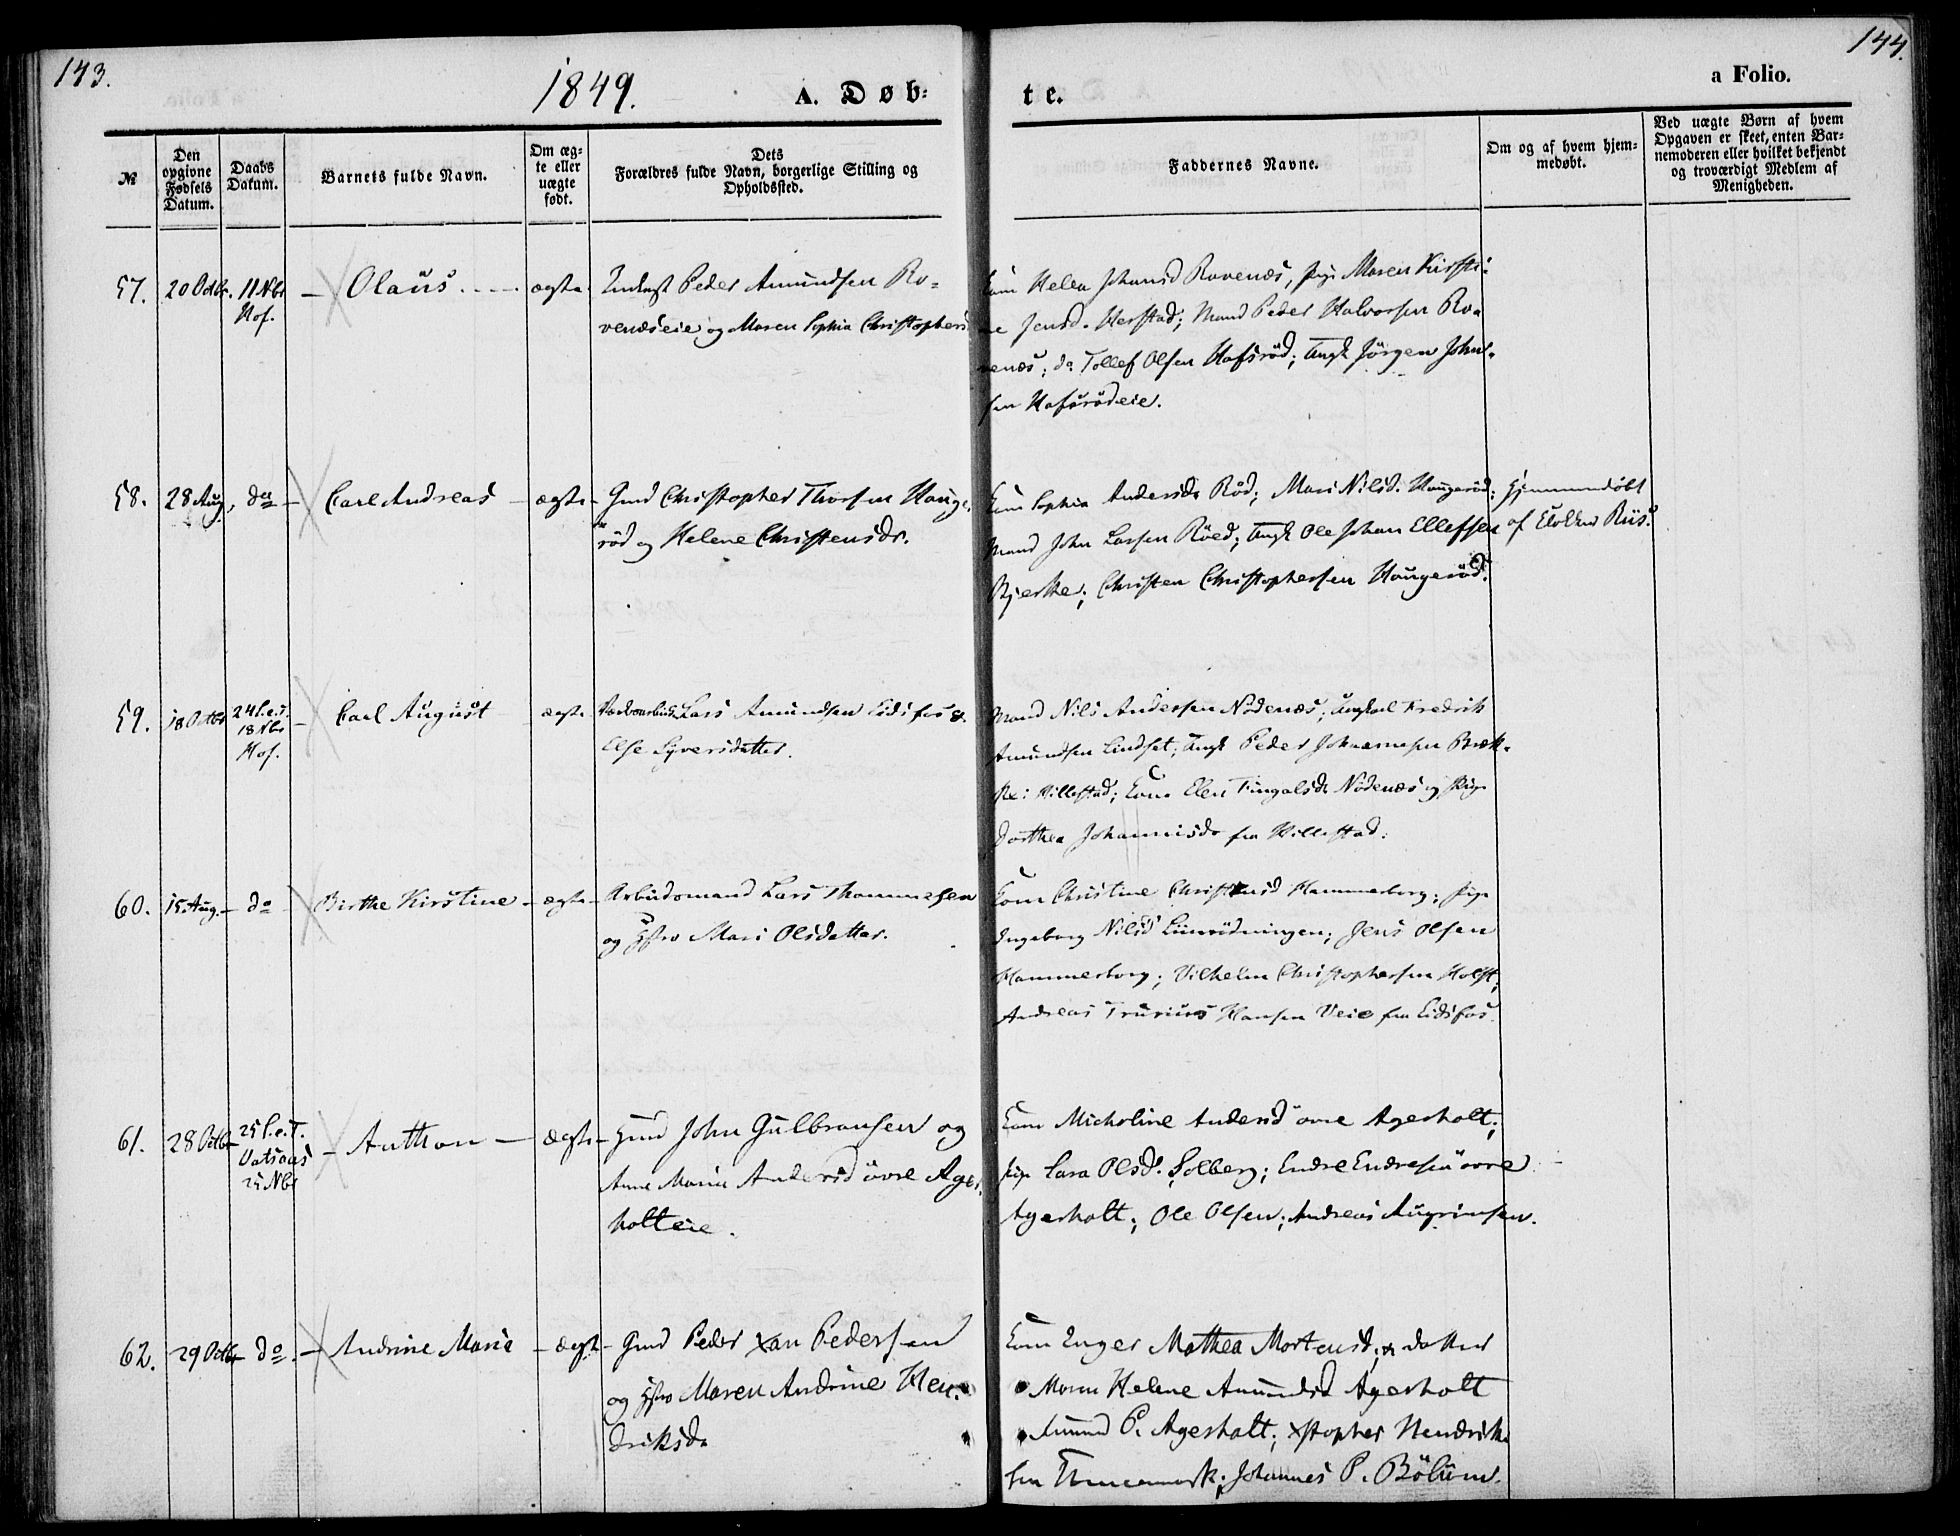 143.
144.
1849.
A. Døb-
te.
a Folio.
No
Den opgivne Fødsels Datum.
Daabs Datum.
Barnets fulde Navn.
Om æg-te eller uægte født.
Dets Forældres fulde Navn, borgerlige Stilling og Opholdssted.
Faddernes Navne.
Om og af hvem hjem-medøbt.
Ved uægte Børn af hvem Opgaven er skeet, enten Bar-nemoderen eller hvilket bekjendt og troværdigt Medlem af Menigheden.
57. 20 Octbr. 11 Nbr Hof. Olaus. ægte
Inderst Peder Amundsen Ro-
venæseie og Maren Sophia Christophersd
Kone Helea Johansd Rovenæs, pige Maren Kirsti-
ne Jensd. Herstad; Mand Peder Halvorsen Ro-
venæs; do Tollef Olsen Hafsröd; Ungk Jörgen John-
sen Hafsrödeie.
58. 28 Aug. do Carl Andreas ægte
Gmd Christopher Thorsen Hauge-
röd og Helene Christensdr.
Kone Sophia Andersdr Röd; Mari Nilsd. Haugeröd;
Mand John Larsen Röed; Ungk Ole Johan Ellefsen
Bjerke; Christen Christophersen Haugeröd.
Hjemmedöbt
af Klokker Riis.
59. 18 Octbr 24 S. e. T. 18 Nbr Hof. Carl August ægte
Lars Amundsen Eidsfos &
Else Syversdatter.
Mand Nils Andersen Nödenæs; Ungkarl Fredrik
Amundsen Lindset; Ungk Peder Johannesen Bræk-
ke: Hillestad; Kone Elen Fingalsdr Nödenæs og Pige
Dorthea Johannisdr fra Hillestad.
60. 15 Aug. do Birthe Kirstine ægte
Arbeidsmand Lars Thommesen
og Hstro Mari Olsdatter.
Kone Christine Christensd Hammerborg; pige
Ingeborg Nilsd Liinrödningen; Jens Olsen
Hammerborg; Vilhelm Christophersen Holst;
Andreas Trurius Hansen Veie fra Eidsfos.
61. 28 Octbr 25 S. e. T. Vatsaas 25 Nbr Anthon ægte
Gmd John Gulbransen og
Anne Maria Andersd övre Ager-
holteie.
Kone Micheline Andersd övre Agerholt;
pige Lara Olsd. Solberg; Endre Endresen övre
Agerholt; Ole Olsen; Andreas Augrimsen.
62. 29 Octbr do. Andrine Marie ægte
Gmd Peder Xan Pedersen
og Hstro Maren Andrine Hen-
driksdr
Kone Inger Mathea Mortensd; datter
Maren Helene Amundsd Agerholt
Amund P. Agerholt; Xstopher Hendrik-
sen; Johannes P. Bölum.